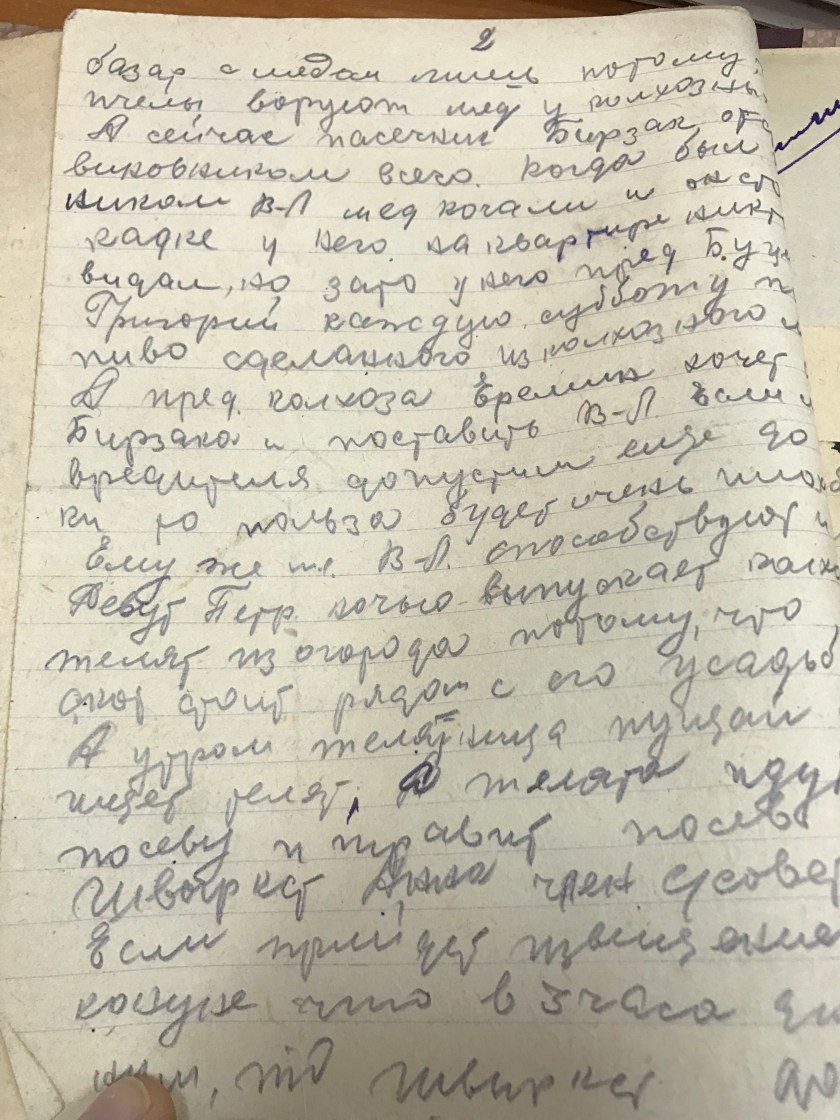 2
базар с медом лишь потому,
пчелы воруют мед у колхозны
А сейчас пасечник Бирзак отс
виновником всего. Когда был
ником В-Л мед качали и он сто
кадке у него на квартире никт
видал, но зато у него пред Буц
Григорий каждую субботу п
пиво сделанного из колхозного м
А пред. колхоза Еремин хочет
Бирзака и поставить В-Л. Если
вредителя допустим еще до
ки то польза будет очень плох
Ему же В-Л. способствует и
Петр. ночью выпускает колх
телят из огорода потому, что
скот стоит рядом с его усадьб
А утром телятница пущай
ищет телят, а телята идут
посеву и травит посев
Швыркст Анна член с/совет
Если прийдет извещение
кануне что в 3 часа
ним, то Швыркст